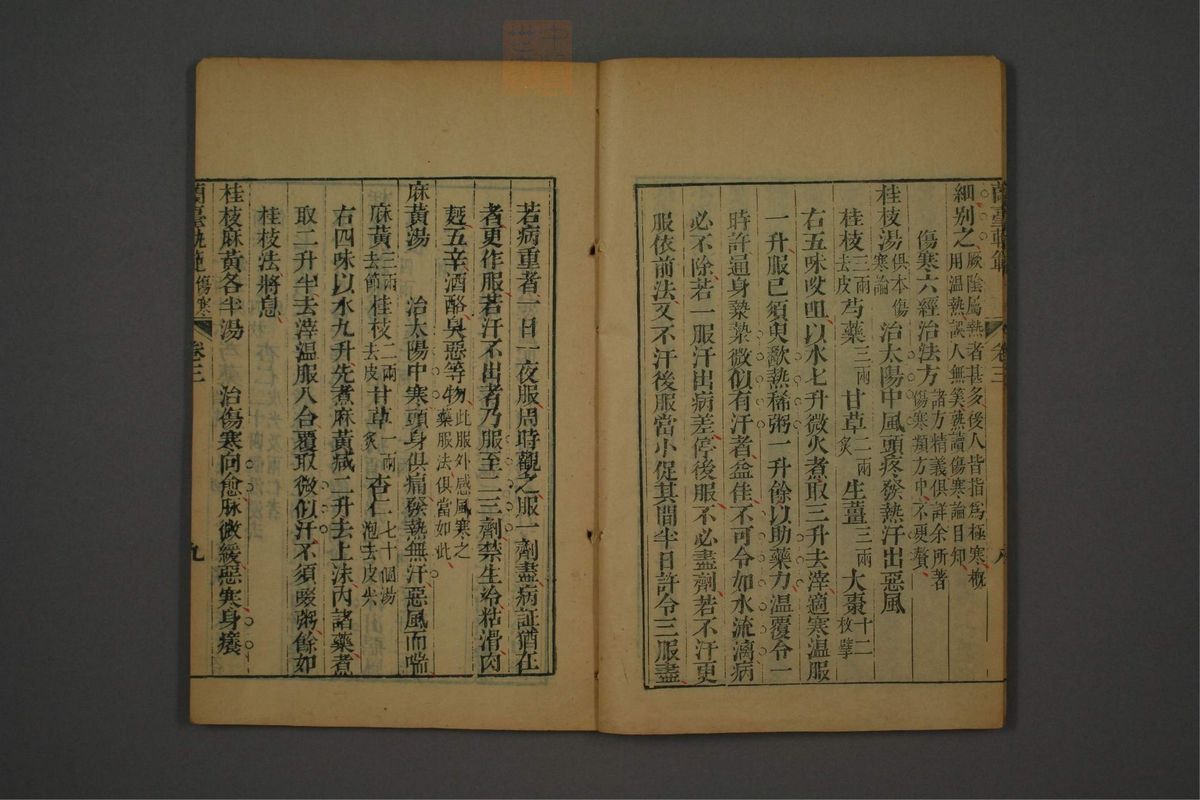 蘭臺軌範 卷三 八
細別之厥陰屬熱者甚多後人皆指為極寒概用温熱誤人無笑熟讀傷寒論目知
傷寒六經治法方諸方精義俱詳余所著傷寒類方中不更贅
桂枝湯俱本傷寒論 治太陽中風頭疼發熱汗出惡風
桂枝三兩去皮 芍藥三兩 甘草二兩炙 生薑三兩 大棗十二枚擘
右五味㕮咀以水七升微火煮取三升去滓適寒温服
一升服已須臾歠熱稀粥一升餘以助藥力温覆令一
時許遍身漐漐微似有汗者益佳不可令如水流漓病
必不除若一服汗出病差停後服不必盡劑若不汗更
服依前法又不汗後服當小促其間半日許令三服盡
若病重者一日一夜服周時觀之服一劑盡病証猶在
者更作服若汗不出者乃服至二三劑禁生冷粘滑肉
麫五辛酒酪臭惡等物此服外感風寒之藥服法俱當如此
麻黃湯 治太陽中寒頭身俱痛發熱無汗惡風而喘
麻黃三兩去節 桂枝二兩去皮 甘草一兩炙 杏仁七十個湯泡去皮尖
右四味以水九升先煮麻黃減二升去上沫内諸藥煮
取二升半去滓温服八合覆取微似汗不須啜粥餘如
桂枝法將息
桂枝麻黃各半湯 治傷寒向愈脉微緩惡寒身癢
蘭臺軌範 傷寒 卷三 九